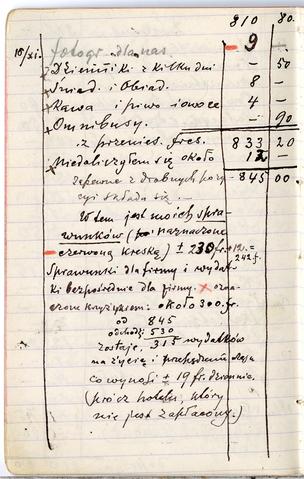 810 80.
18/XI. fotogr. dla nas - 9 -
Dzienniki z kilku dni - 50
Śniad. i Obiad. 8 -
Kawa i piwo i owoce 4 -
Omnibusy. - 90
z przenies. frcs. 833 20
Niedoliczyłem się około 12 -
zapewne z drobnych pozy- 845 00
cyi składa się. —
W tem jest moich spra-
wunków (naznaczone
czerwoną kreską) ± 230 fr. + 12. =
242 f.
Sprawunki dla firmy i wydat-
ki bezpośrednie dla firmy. x ozna-
czone krzyżykiem: około 300. fr.
od 845
odchodzi 530
zostaje. 315 wydatków
na życie i
co wynosi ± 19 fr. dziennie.
(prócz hotelu, który
nie jest zapłacony.)